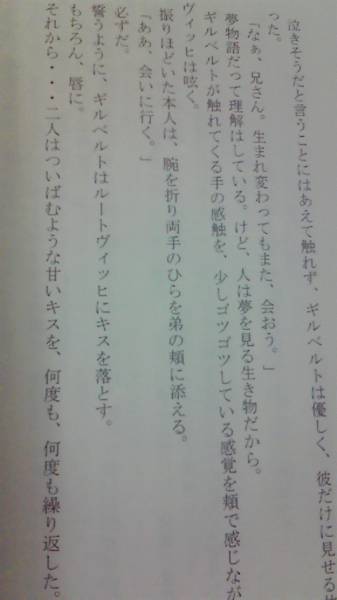 泣きそうだと言うことにはあえて触れず、ギルベルトは優しく、彼だけに見せる
った。
「なぁ、兄さん。生まれ変わってもまた、会おう。」
夢物語だって理解はしている。けど、人は夢を見る生き物だから。
ギルベルトが触れてくる手の感触を、少しゴツゴツしている感覚を頬で感じなが
ヴィッヒは呟く。
振りほどいた本人は、腕を折り両手のひらを弟の頬に添える。
「ああ、会いに行く。」
必ずだ。
誓うように、ギルベルトはルートヴィッヒにキスを落とす。
もちろん、唇に。
それから・・・二人はついばむような甘いキスを、何度も、何度も繰り返した。